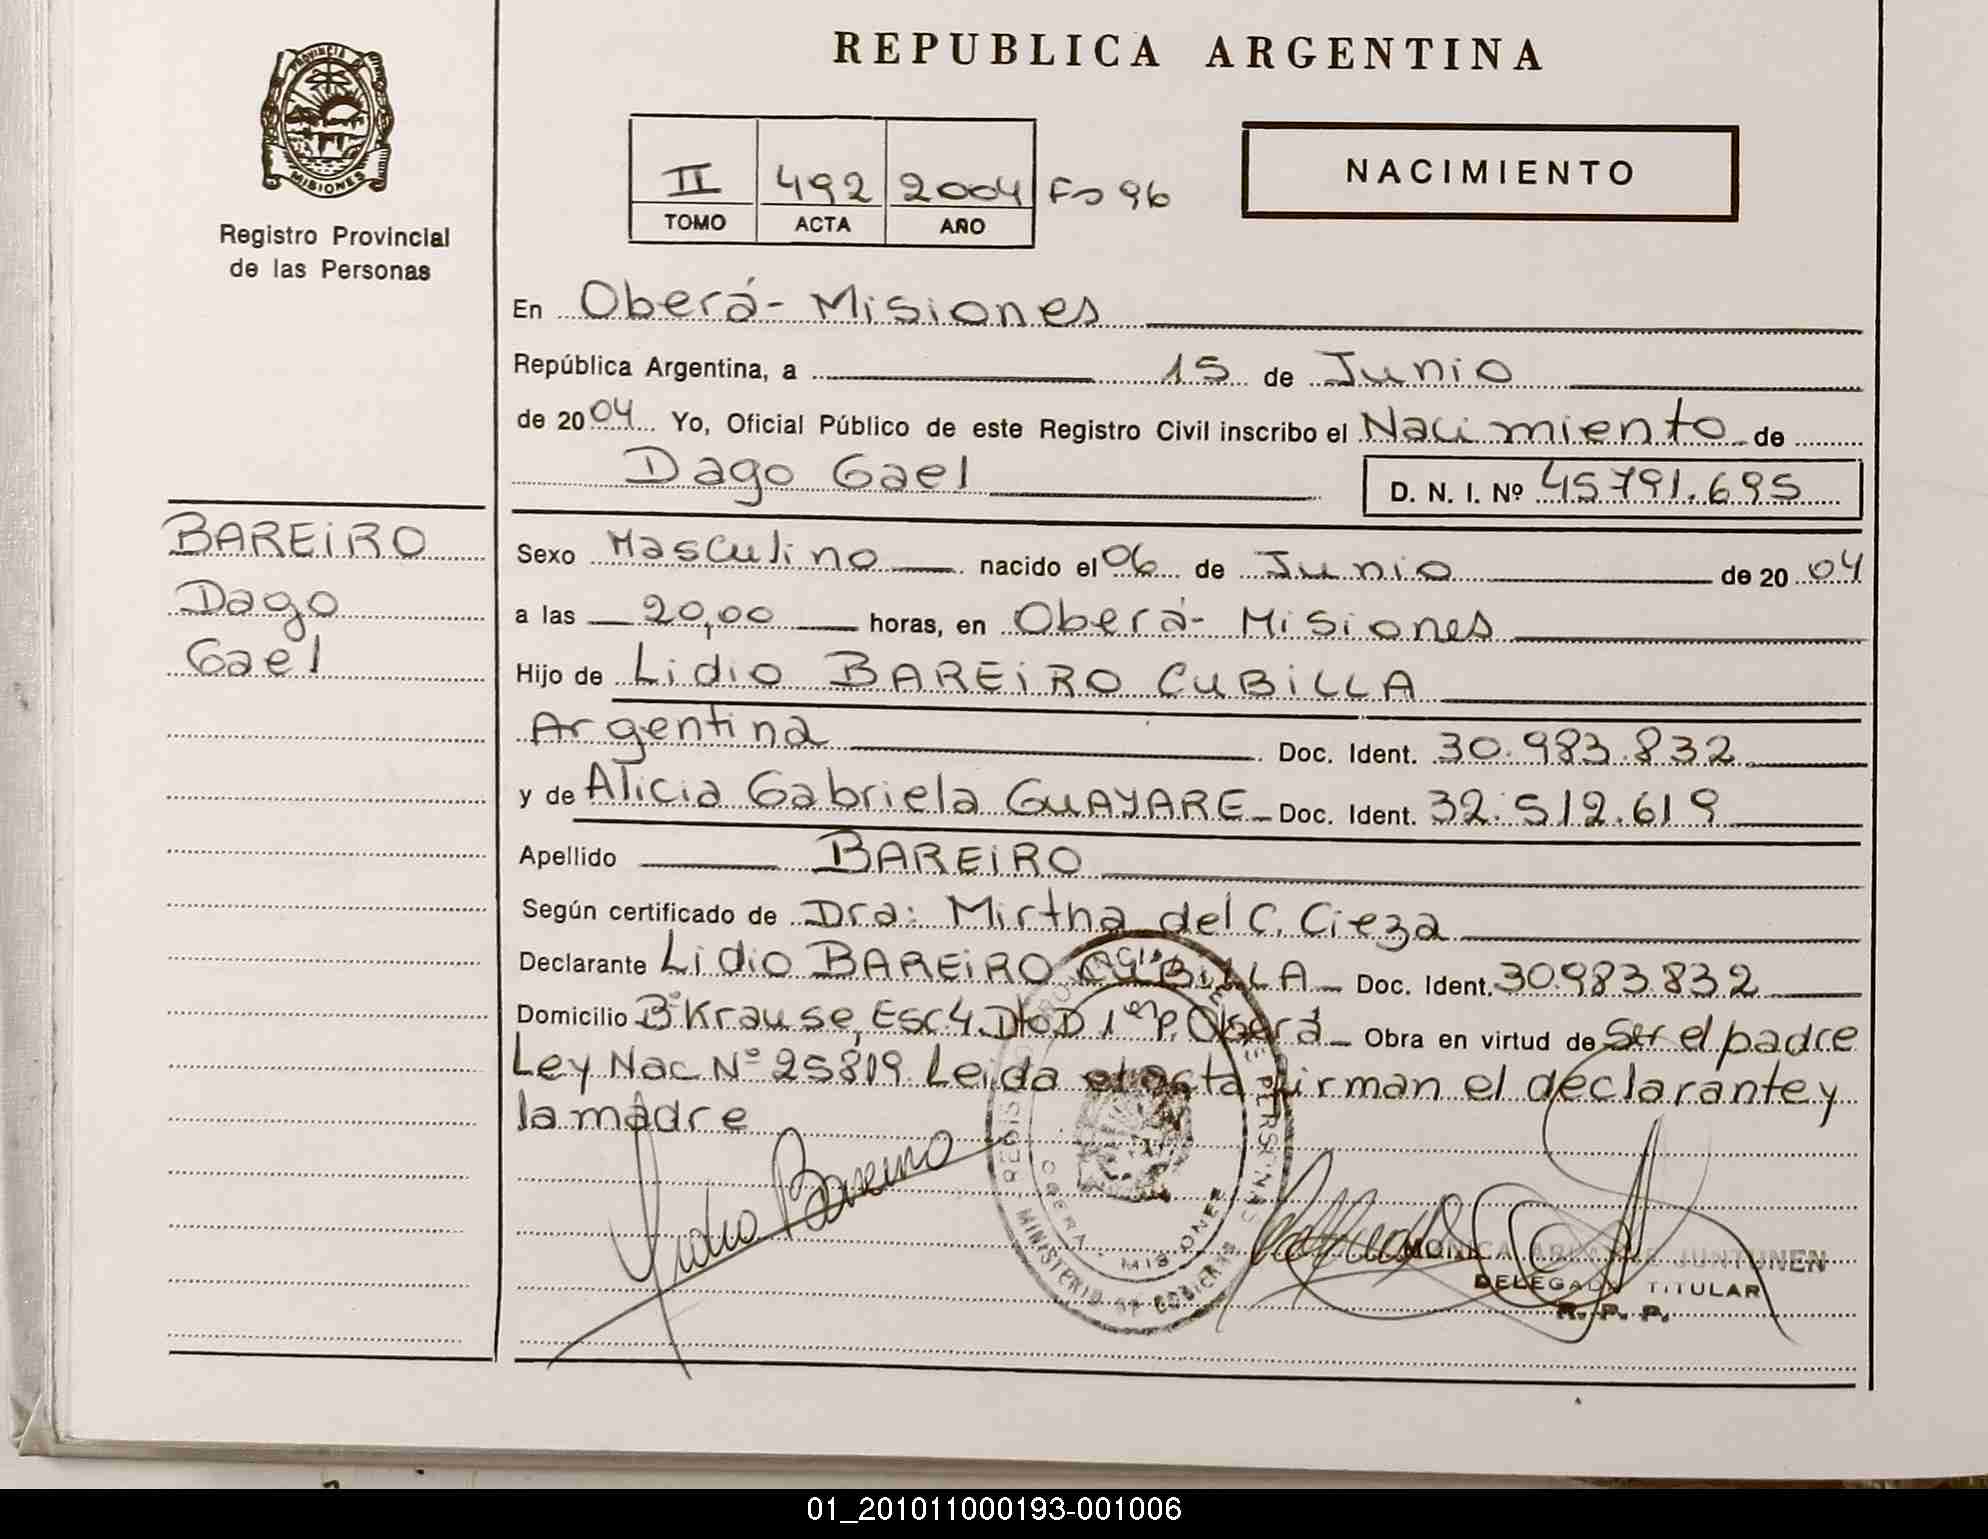 PROVINCIA DE
MISIONES
Registro Provincial
de las Personas
REPUBLICA ARGENTINA
II 492 2004 Fº 96
TOMO ACTA AÑO
NACIMIENTO
En Oberá - Misiones
República Argentina, a 15 de Junio
de 2004 Yo, Oficial Público de este Registro Civil inscribo el Nacimiento de
Dago Gael D. N. I. Nº 45791.695
BAREIRO
Dago
Gael
Sexo Masculino nacido el 06 de Junio de 2004
a las 20,00 horas, en Oberá - Misiones
Hijo de Lidio BAREIRO CUBILLA
Argentina Doc. Ident. 30.983.832
y de Alicia Gabriela GUAYARE Doc. Ident. 32.512.619
Apellido BAREIRO
Según certificado de Dra: Mirtha del C. Cieza
Declarante Lidio BAREIRO CUBILLA Doc. Ident. 30.983.832
Domicilio Bº Krause, Esc 4. Dto D 1er P. Oberá Obra en virtud de Ser el padre
Ley Nac Nº 25819 Leida el acta firman el declarante y
la madre
Lidio Bareiro
REGISTRO PROVINCIAL DE LAS PERSONAS
OBERA - MISIONES
MINISTERIO DE GOBIERNO
MONICA JUNTUNEN
DELEGADA TITULAR
R. P. P.
01_201011000193-001006